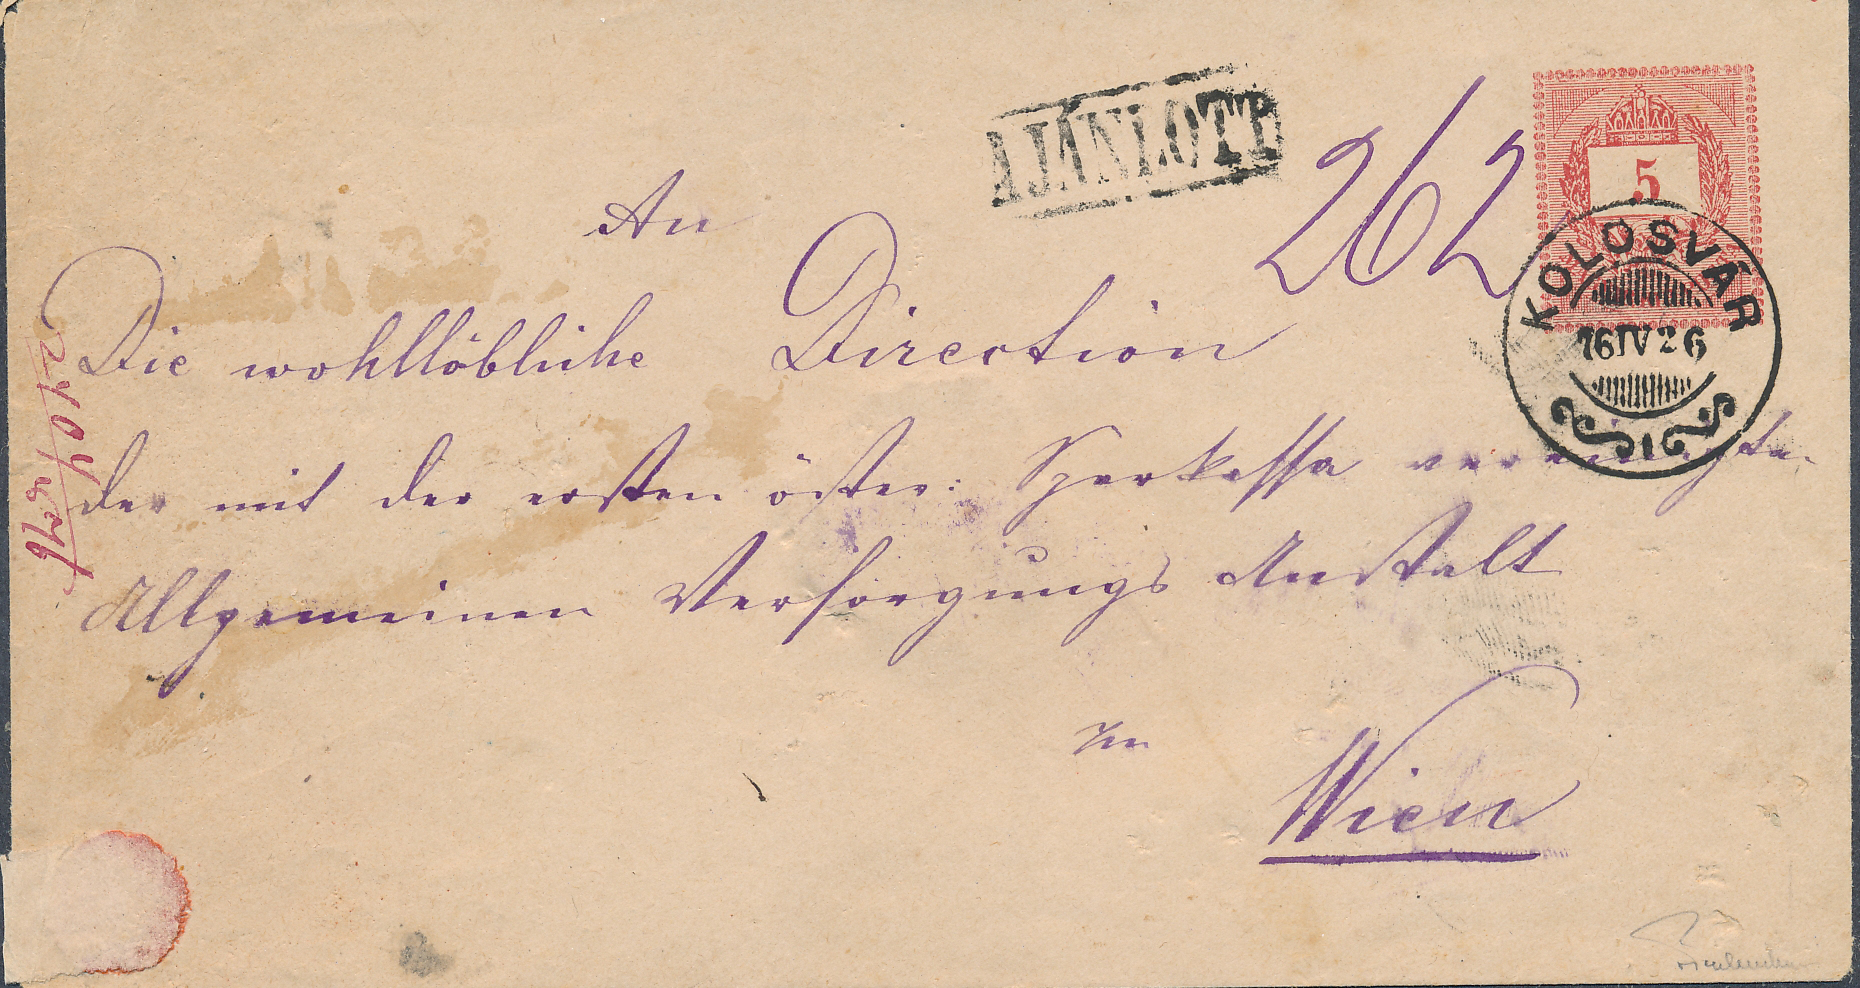 AJÁNLOTT
262
5
KOLOSVÁR
76 IV 26
An
Die wohllöbliche Direction
der mit der ersten öster: Sparkassa vereinigten
Allgemeinen Versorgungs Anstalt
in
Wien